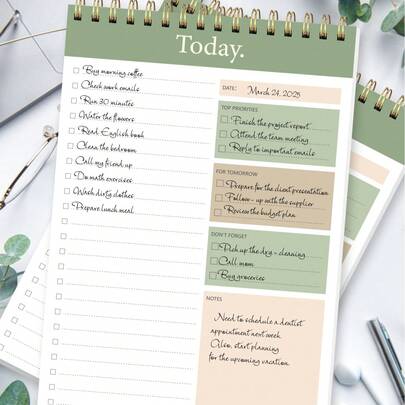 Today.
Buy morning coffee
Check work emails
Run 30 minutes
Water the flowers
Read English book
Clean the bedroom
Call my friend up
Do math exercises
Wash dirty clothes
Prepare lunch meal
DATE: March 24, 2025
TOP PRIORITIES
Finish the project report
Attend the team meeting
Reply to important emails
FOR TOMORROW
Prepare for the client presentation
Follow-up with the supplier
Review the budget plan
DON'T FORGET
Pick up the dry-cleaning
Call mom
Buy groceries
NOTES
Need to schedule a dentist
appointment next week.
Also, start planning
for the upcoming vacation.